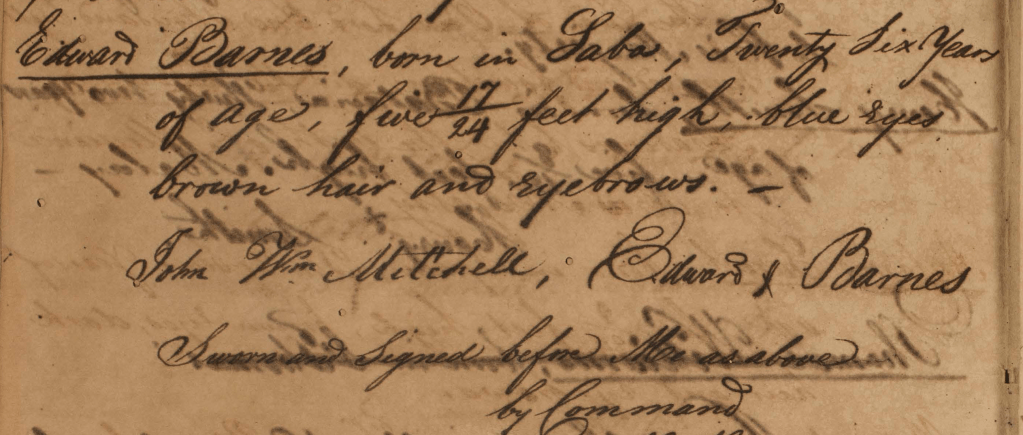 Edward Barnes, born in Saba, Twenty Six Years
of age, five 17/24 feet high, blue eyes
brown hair and eyebrows. —
John Wm Mitchell, Edward x Barnes
Sworn and Signed before Me as above
by Command